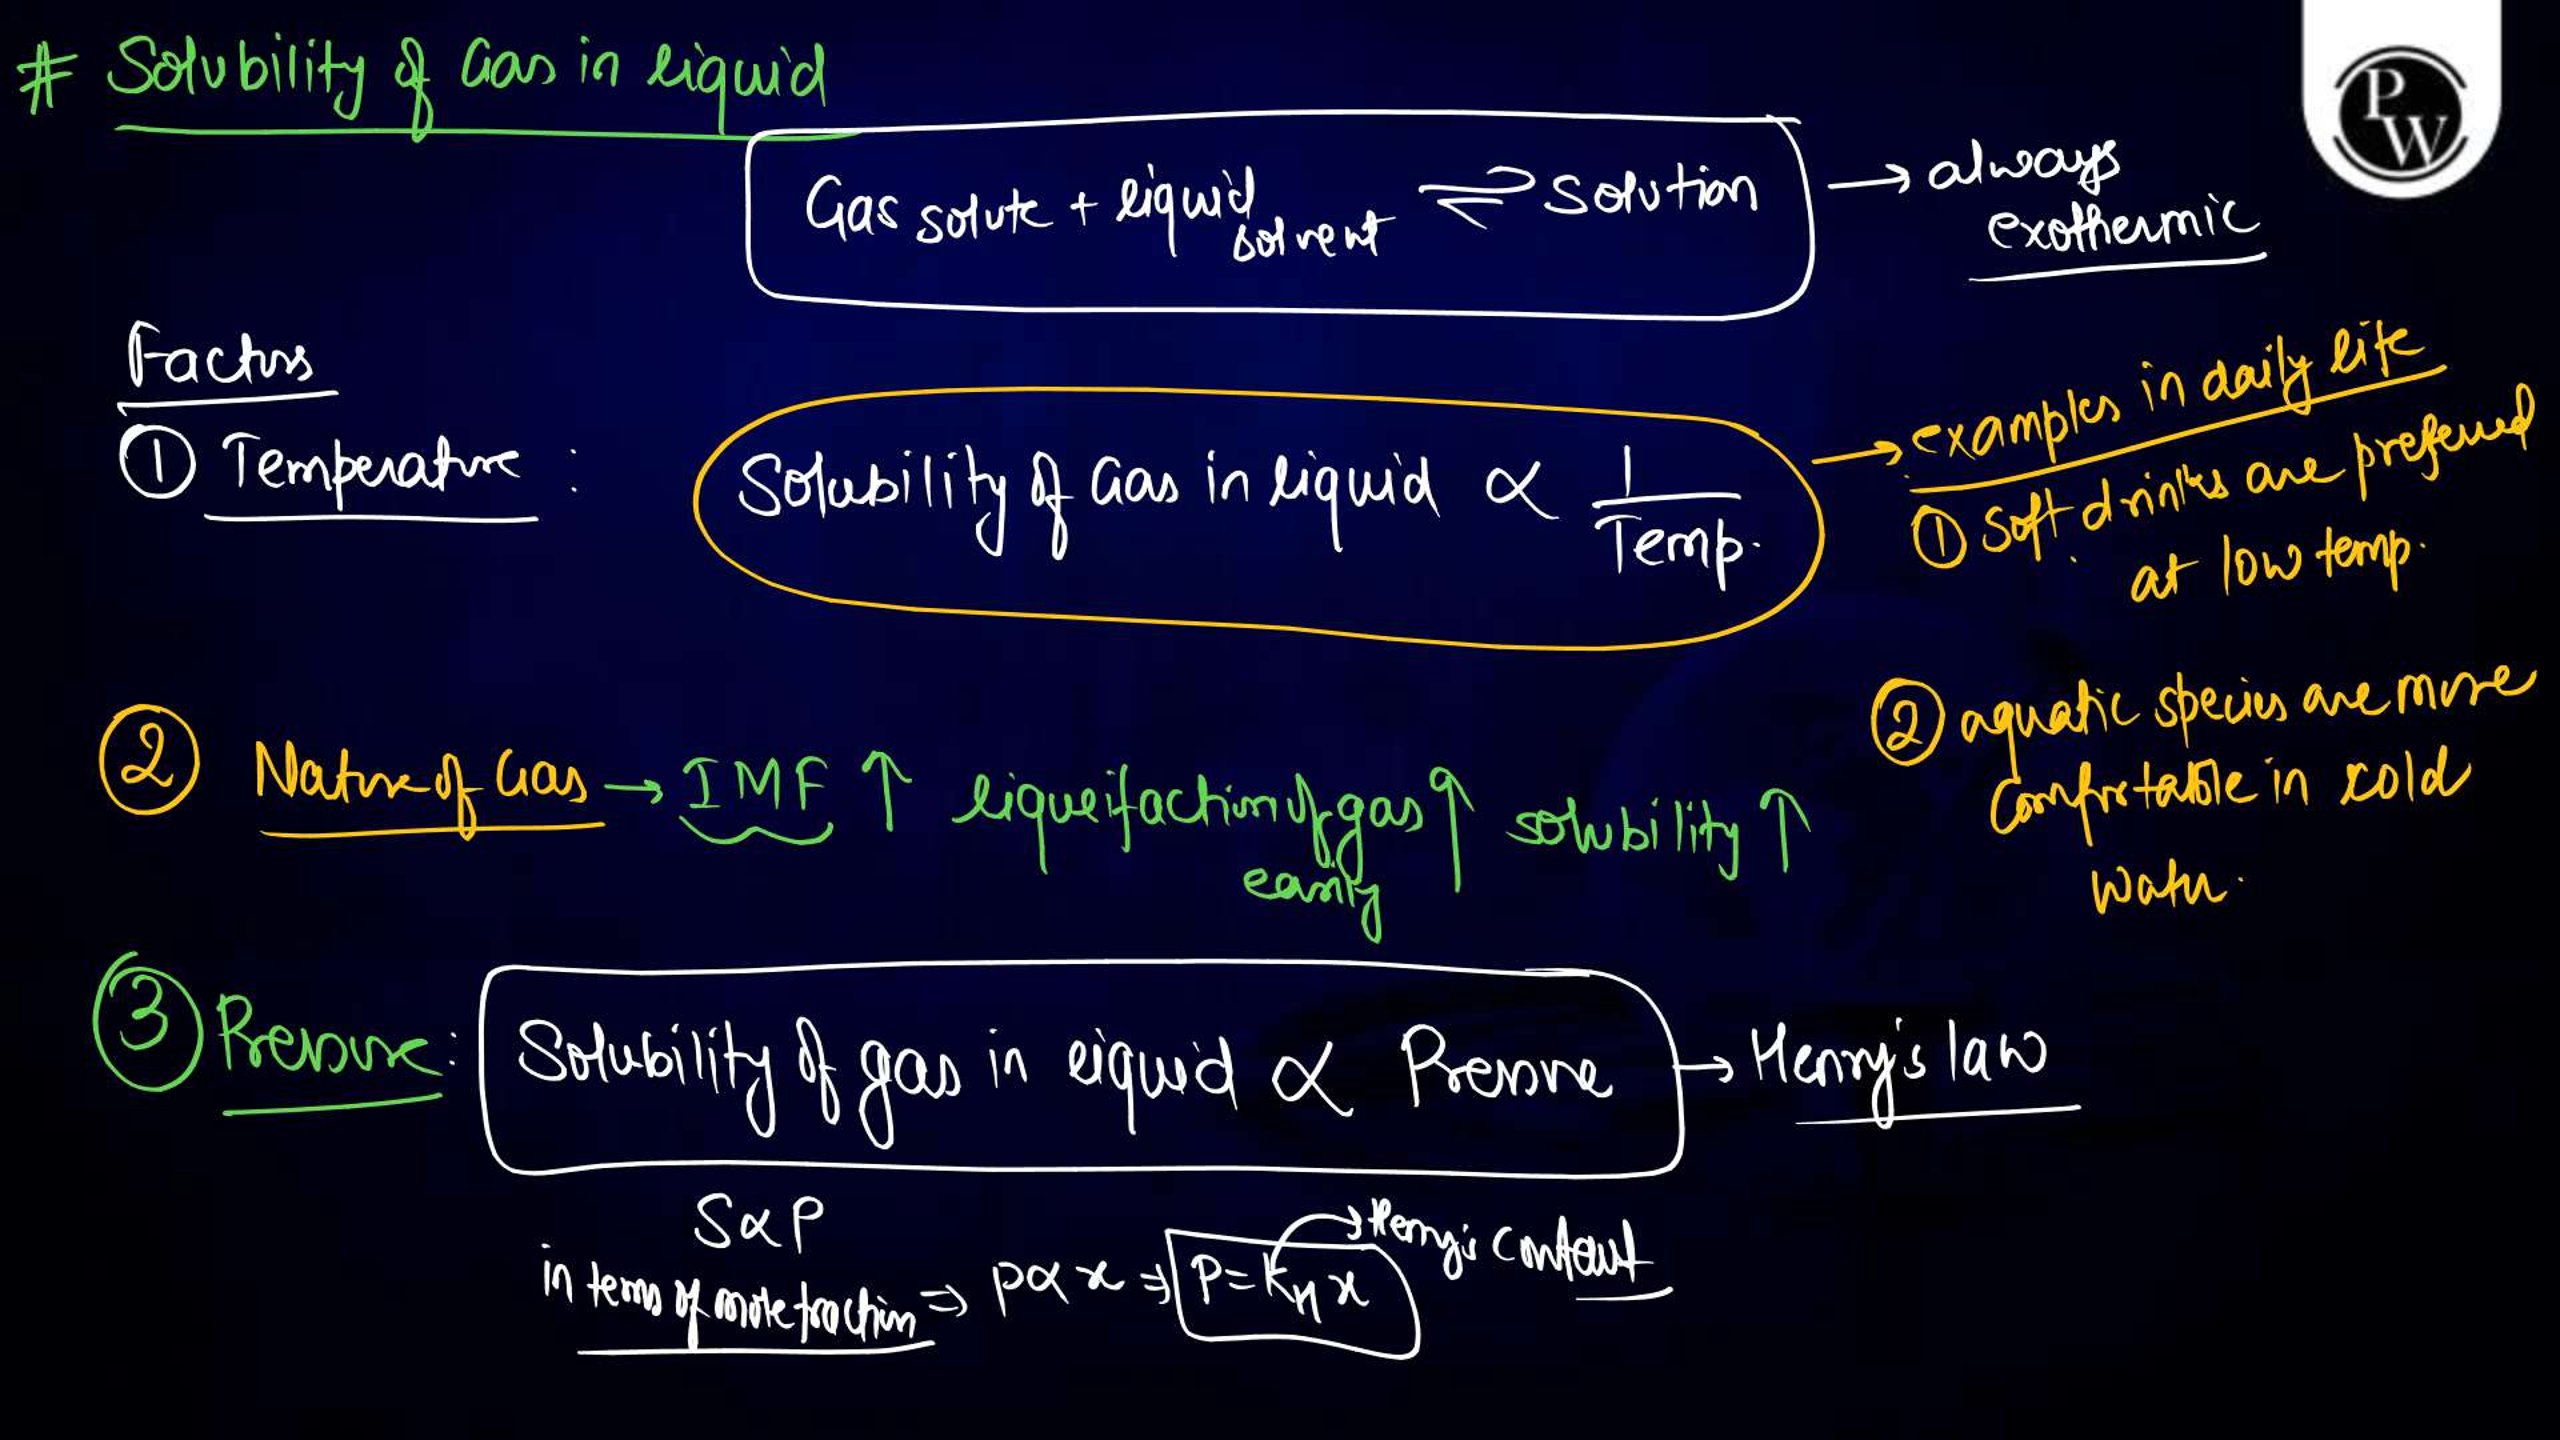 # Solubility of Gas in liquid
PW
Gas solute + liquid solvent ⇌ Solution → always exothermic
Factors
① Temperature : Solubility of Gas in liquid ∝ 1/Temp. → examples in daily life
① Soft drinks are preferred
at low temp.
② aquatic species are more
comfortable in cold
water.
② Nature of Gas → IMF ↑ liqueifaction of gas easily ↑ solubility ↑
③ Pressure : Solubility of gas in liquid ∝ Pressure → Henry's law
S ∝ P
in terms of mole fraction ⇒ p ∝ x ⇒ P = K_H x → Henry's Contant